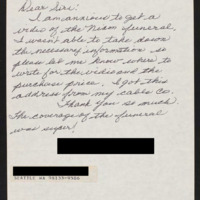 Dear Sirs:
I am anxious to get a
video of the Nixon funeral.
I wasn't able to take down
the necessary information so
please let me know where to
write for the video and the
purchase price. I got this
address from my cable co.
Thank you so much.
The coverage of the funeral
was super!
SEATTLE WA